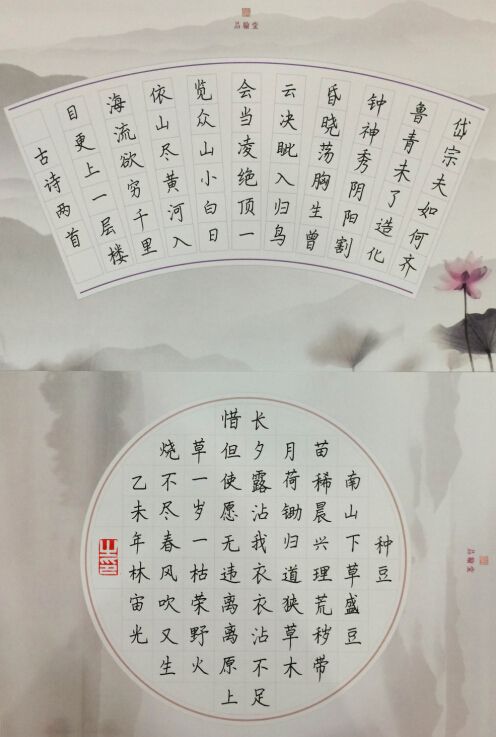 品翰堂
岱宗夫如何齐
鲁青未了造化
钟神秀阴阳割
昏晓荡胸生曾
云决眦入归鸟
会当凌绝顶一
览众山小白日
依山尽黄河入
海流欲穷千里
目更上一层楼
古诗两首
品翰堂
种豆
南山下草盛豆
苗稀晨兴理荒秽带
月荷锄归道狭草木
长夕露沾我衣衣沾不足
惜但使愿无违离离原上
草一岁一枯荣野火
烧不尽春风吹又生
乙未年林宙光